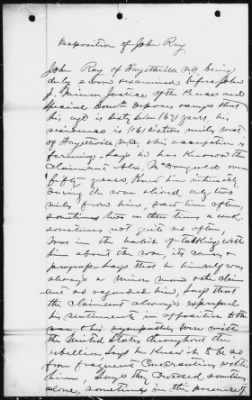 Deposition of John Ray
John Ray of Fayetteville NC being
duly sworn examined before John
J. Minor Justice of the Peace and
Special Comr deposes & says that
his age is sixty years, his
residence is sixteen miles west
of Fayetteville NC, his occupation is
farming, says he has known the
claimant over
fifty years, knew him intimately
During the war lived only two
miles from him, saw him often,
sometimes two or three times a week
sometimes not quite so often,
Was in the habit of talking with
him about the war, its causes &
progress, says that he himself was
always a Union man & the claim-
ant so regarded him, says that
the claimant always expressed
his sentiments in opposition to the
war & his sympathies were with
the United States throughout the
rebellion says he knew it to be so
from frequent conversation with
him, says they conversed sometimes
alone, sometimes in the presence of